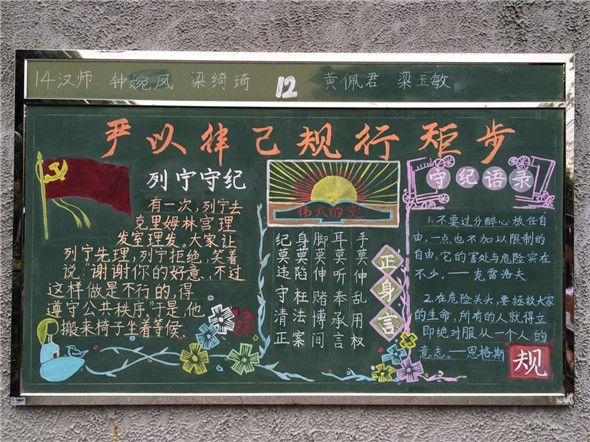 14汉师 钟婉凤 梁绮琦 12 黄佩君 梁玉敏
严以律己规行矩步
列宁守纪
有一次，列宁去
克里姆林宫理
发室理发。大家让
列宁先理，列宁拒绝，笑着
说："谢谢你的好意，不过
这样做是不行的，得
遵守公共秩序"于是，他
搬来椅子坐着等候。
伟大的党
正身言
手莫伸乱用权
耳莫听奉承言
脚莫伸赌博间
身莫陷枉法案
纪莫违守清正
守纪语录
1.不要过分醉心放任自
由，一点也不加以限制的
自由，它的害处与危险实在
不少。——克雷洛夫
2.在危险关头，要拯救大家
的生命，所有的人就得立
即绝对服从一个人的
意志。——恩格斯
规